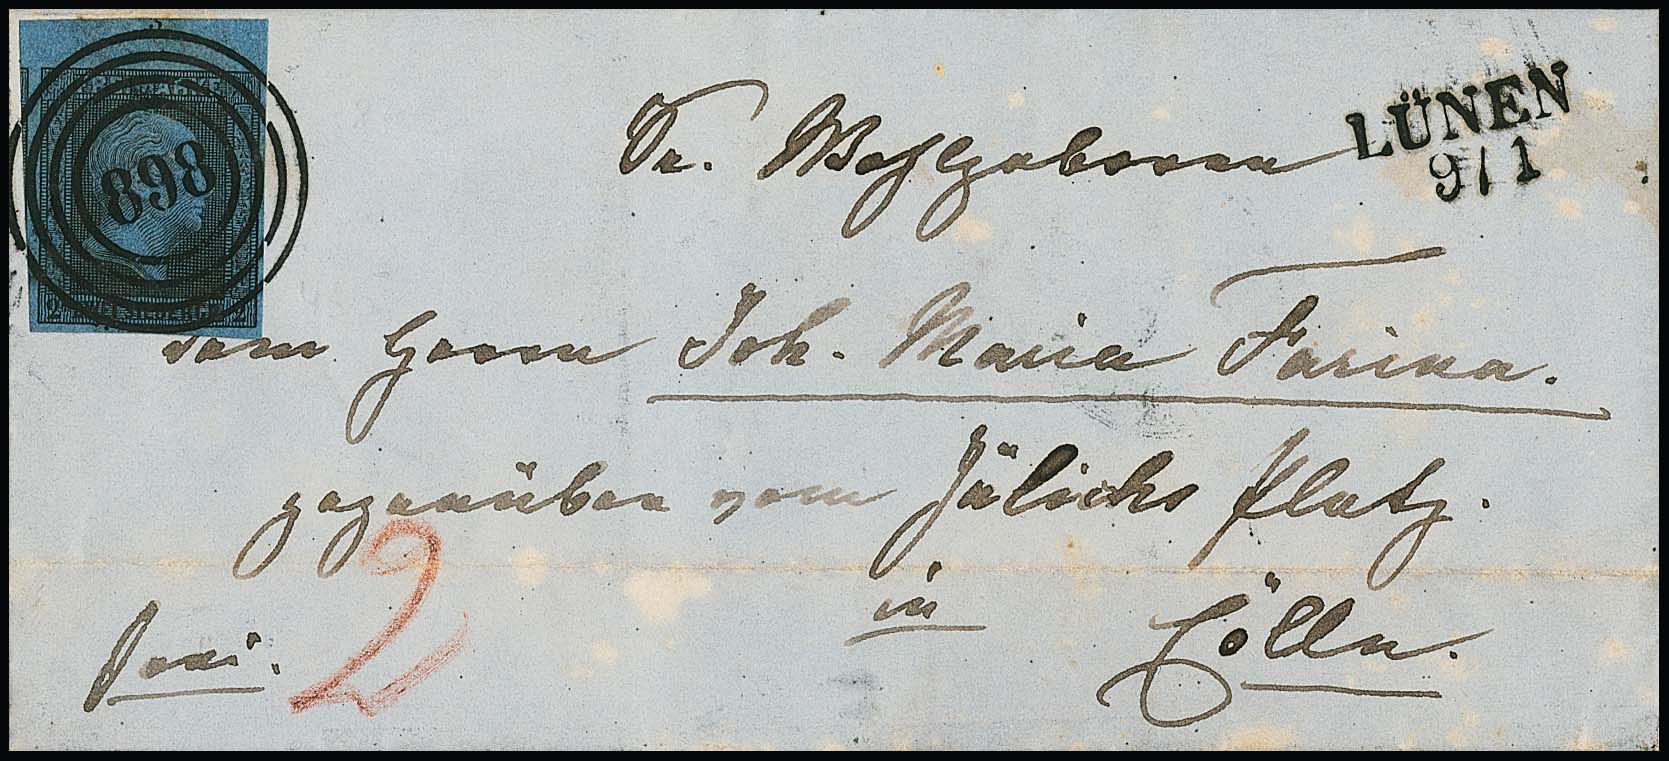 898
LÜNEN
9/1
Sr. Wohlgeboren
dem Herrn Joh. Maria Farina.
gegenüber vom Jülichs Platz.
in Cölln.
2